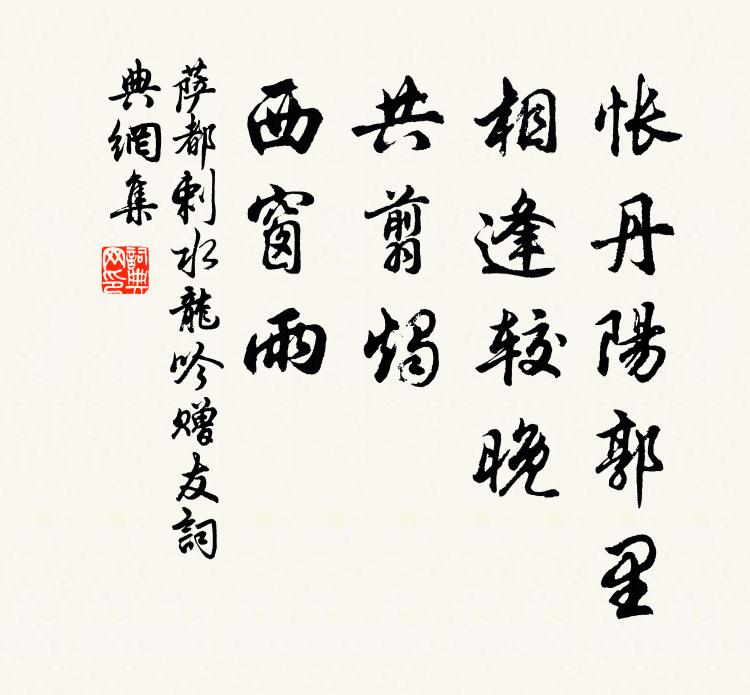 悵丹陽郭里
相逢較晚
共剪燭
西窗雨
薩都剌水龍吟贈友詞
典網集
詞典網印